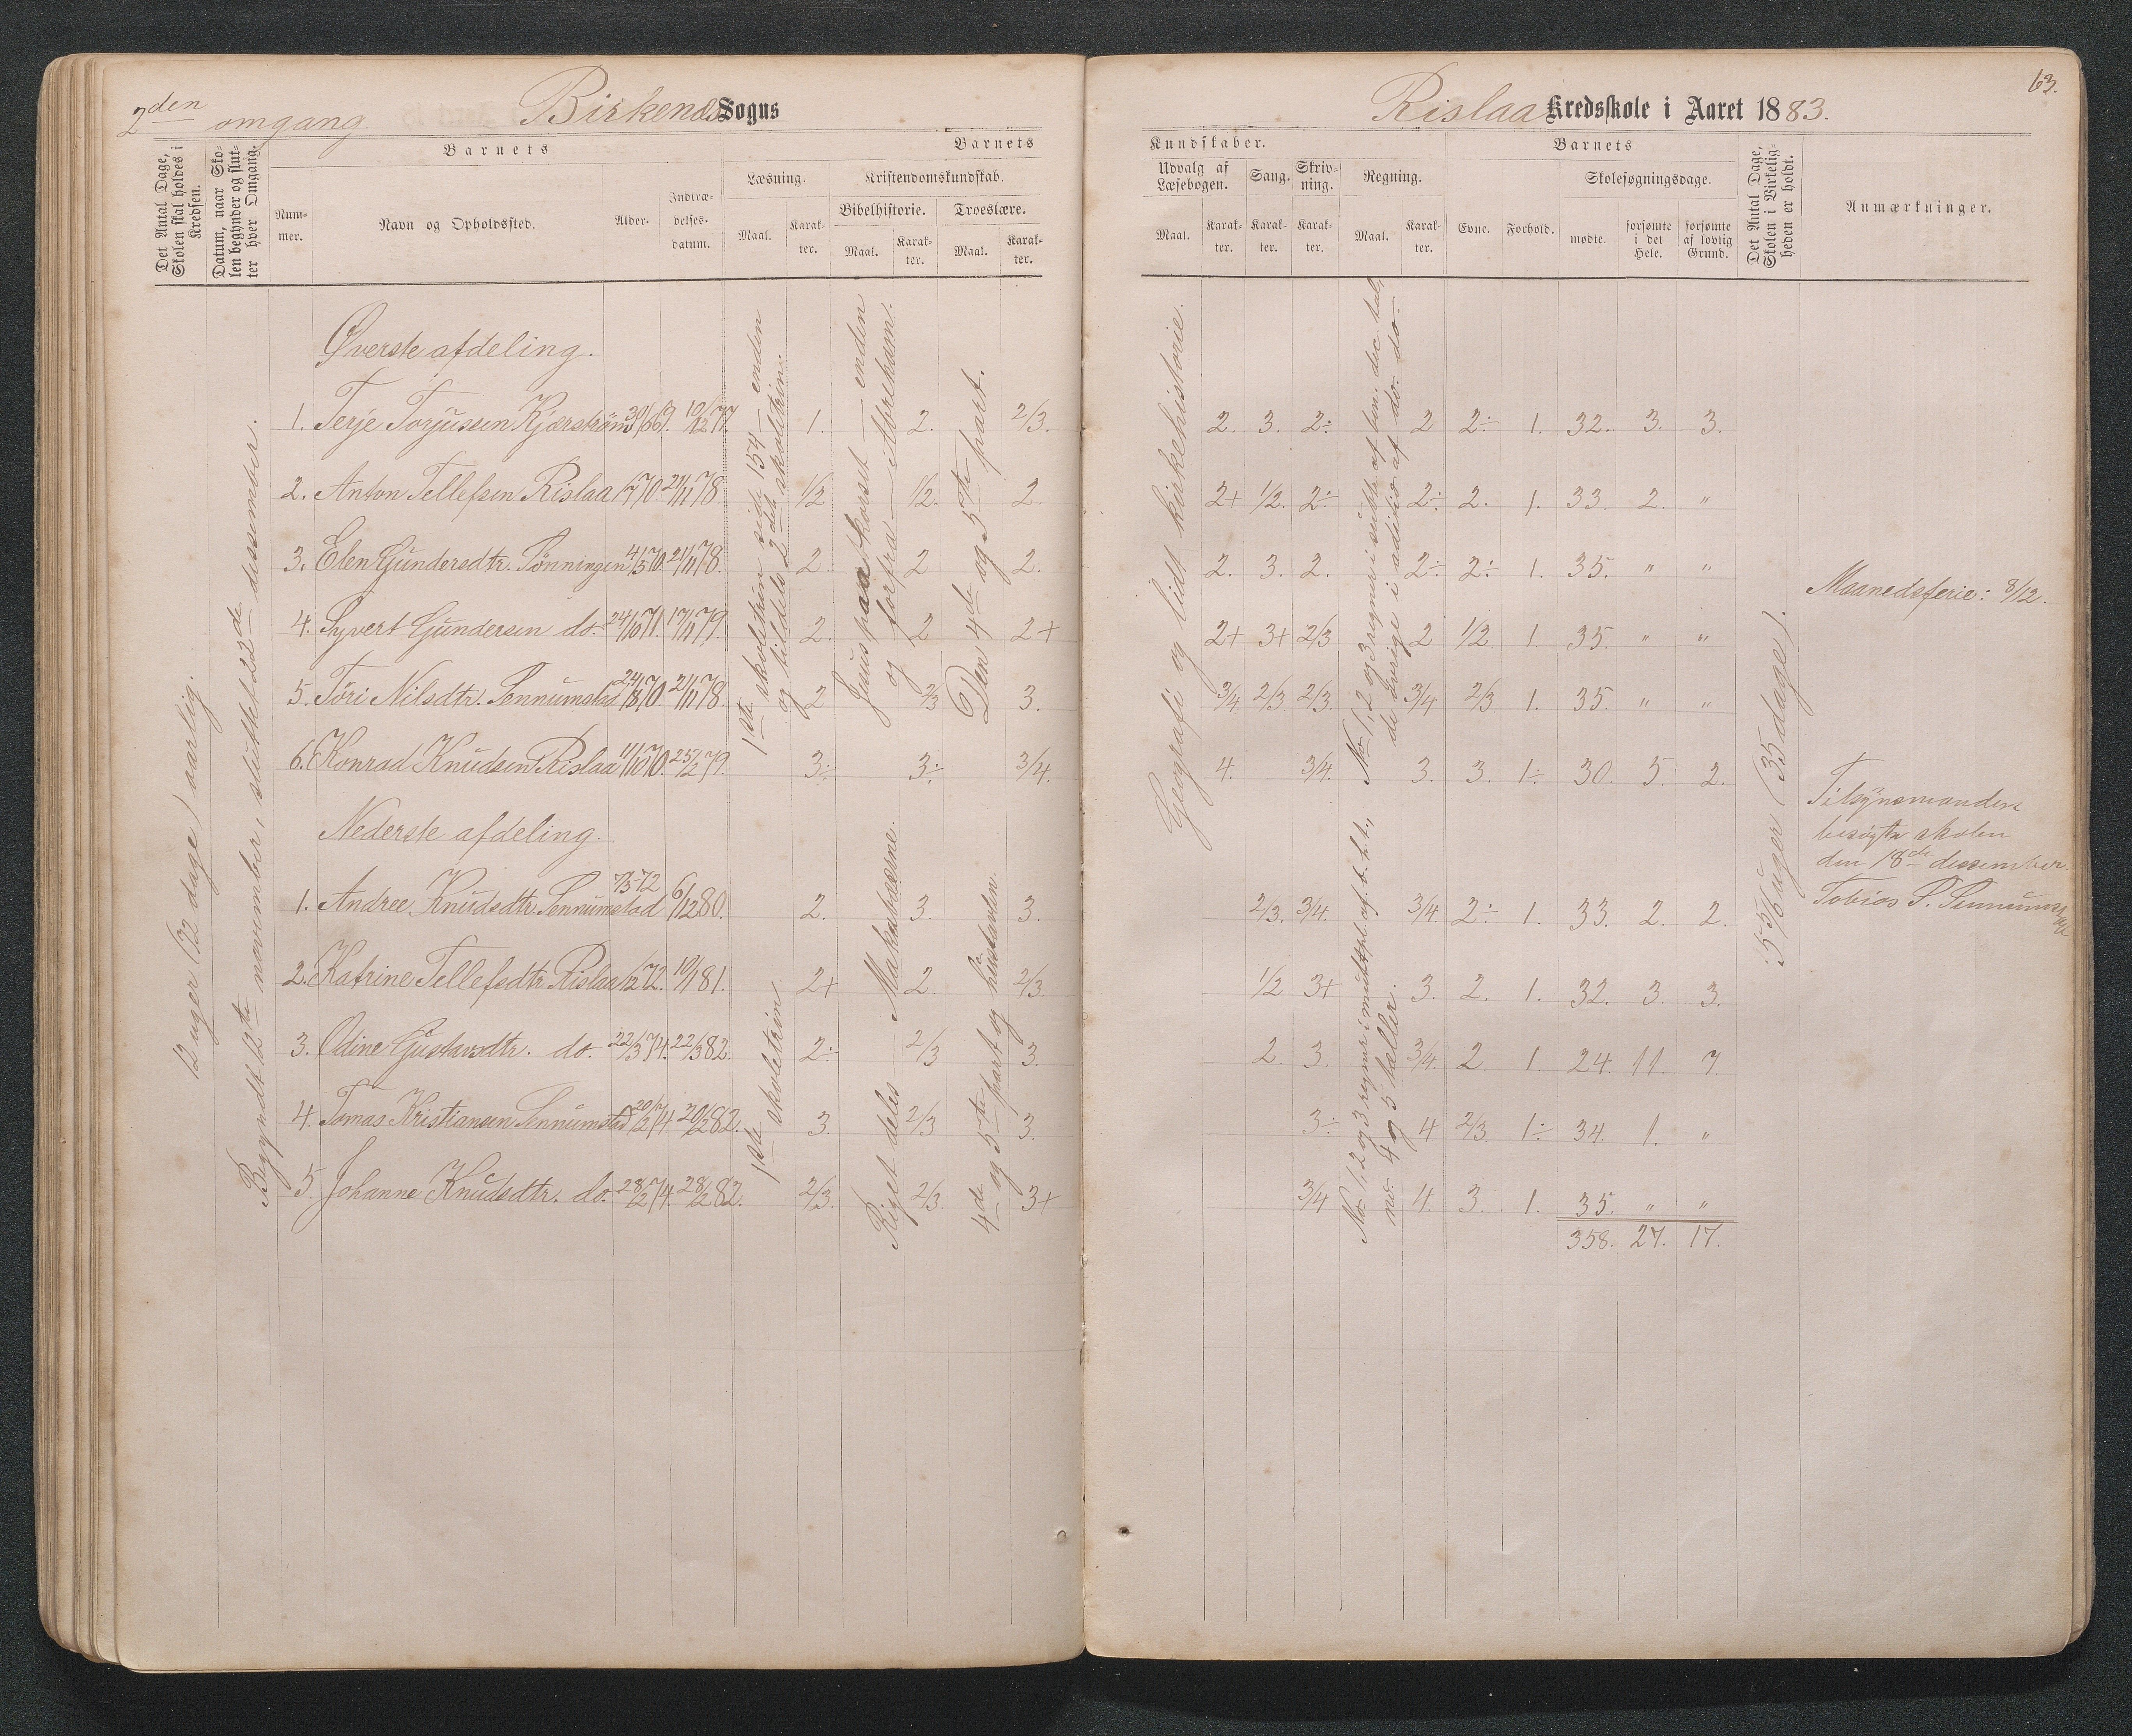 2den omgang
Birkenæs Sogns
Rislaa Kredsskole i Aaret 1883.
63.
Det Antal Dage, Skolen skal holdes i Kredsen.
Datum, naar Skolen begynder og slutter hver Omgang.
Barnets
Nummer.
Navn og Opholdssted.
Alder.
Indtrædelsesdatum.
Barnets
Læsning.
Maal.
Karakter.
Kristendomskundskab.
Bibelhistorie.
Maal.
Karakter.
Troeslære.
Maal.
Karakter.
Kundskaber.
Udvalg af Læsebogen.
Maal.
Karakter.
Sang.
Karakter.
Skrivning.
Karakter.
Regning.
Maal.
Karakter.
Barnets
Evne.
Forhold.
Skolesøgningsdage.
mødte.
forsømte i det Hele.
forsømte af lovlig Grund.
Det Antal Dage, Skolen i Virkeligheden er holdt.
Anmærkninger.
12 uger (72 dage) aarlig.
Begyndt 12te november, sluttet 22de desember.
Øverste afdeling.
1. Terje Torjussen Kjærstrøm 30/3 69. 10/12 77. 1. 2. 2/3. 2. 3. 2÷ 2 2÷ 1. 32. 3. 3.
2. Anton Tellefsen Rislaa 1/7 70. 21/11 78. 1/2 1/2. 2. 2+ 1/2. 2÷ 2÷ 2. 1. 33. 2. "
3. Elen Gundersdtr. Tønningen 4/3 70. 21/11 78. 2. 2 2. 2. 3. 2. 2÷ 2÷ 1. 35. " "
4. Syvert Gundersen do. 24/10 71. 17/11 79. 2. 2 2+ 2+ 3+ 2/3 2 1/2 1. 35. " "
5. Tori Nilsdtr. Sennumstad 24/8 70. 21/11 78. 2 2/3 3. 3/4 2/3 2/3. 3/4 2/3 1. 35. " "
6. Konrad Knudsen Rislaa 11/10 70. 25/2 79. 3÷ 3÷ 3/4. 4. 3/4. 3. 3. 1÷ 30. 5. 2.
1ste skoletrin side 154 enden
og tildels 2det skoletrin.
Jesus paa korset – enden
og forfra – Abreham.
Den 4de og 5te part.
Geografi og lidt kirkehistorie.
No 1, 2 og 3 regner i subtr. af ben. dec. tal,
de øvrige i addition af do. do.
Nederste afdeling.
1. Andree Knudsdtr. Sennumstad 7/5 72 6/12 80. 2. 3. 3. 2/3. 3/4. 3/4. 2÷ 1. 33. 2. 2.
2. Katrine Tellefsdtr. Rislaa 1/2 72. 10/1 81. 2+ 2 2/3. 1/2 3+ 3. 2. 1. 32. 3. 3.
3. Odine Gustavsdtr. do. 22/3 74. 22/3 82. 2÷ 2/3 3. 2 3. 3/4. 2 1. 24. 11. 7.
4. Tomas Kristiansen Sennumstad 20/2 74 20/2 82. 3. 2/3 3. 3÷ 4 2/3. 1÷ 34. 1. "
5. Johanne Knudsdtr. do. 28/2 74. 28/2 82. 2/3. 2/3. 3+ 3/4 4. 3. 1. 35. " "
358. 27. 17.
1ste skoletrin.
Riget deles – Makabæerne.
4de og 5te part og paa hustavlen.
No 1, 2 og 3 regner i multpl. af t. h. t.,
no. 4 og 5 tæller.
5 5/6 uger (35 dage).
Maanedsferie: 8/12.
Tilsynsmanden
besøgte skolen
den 18de desember.
Tobias P. Sennumstad